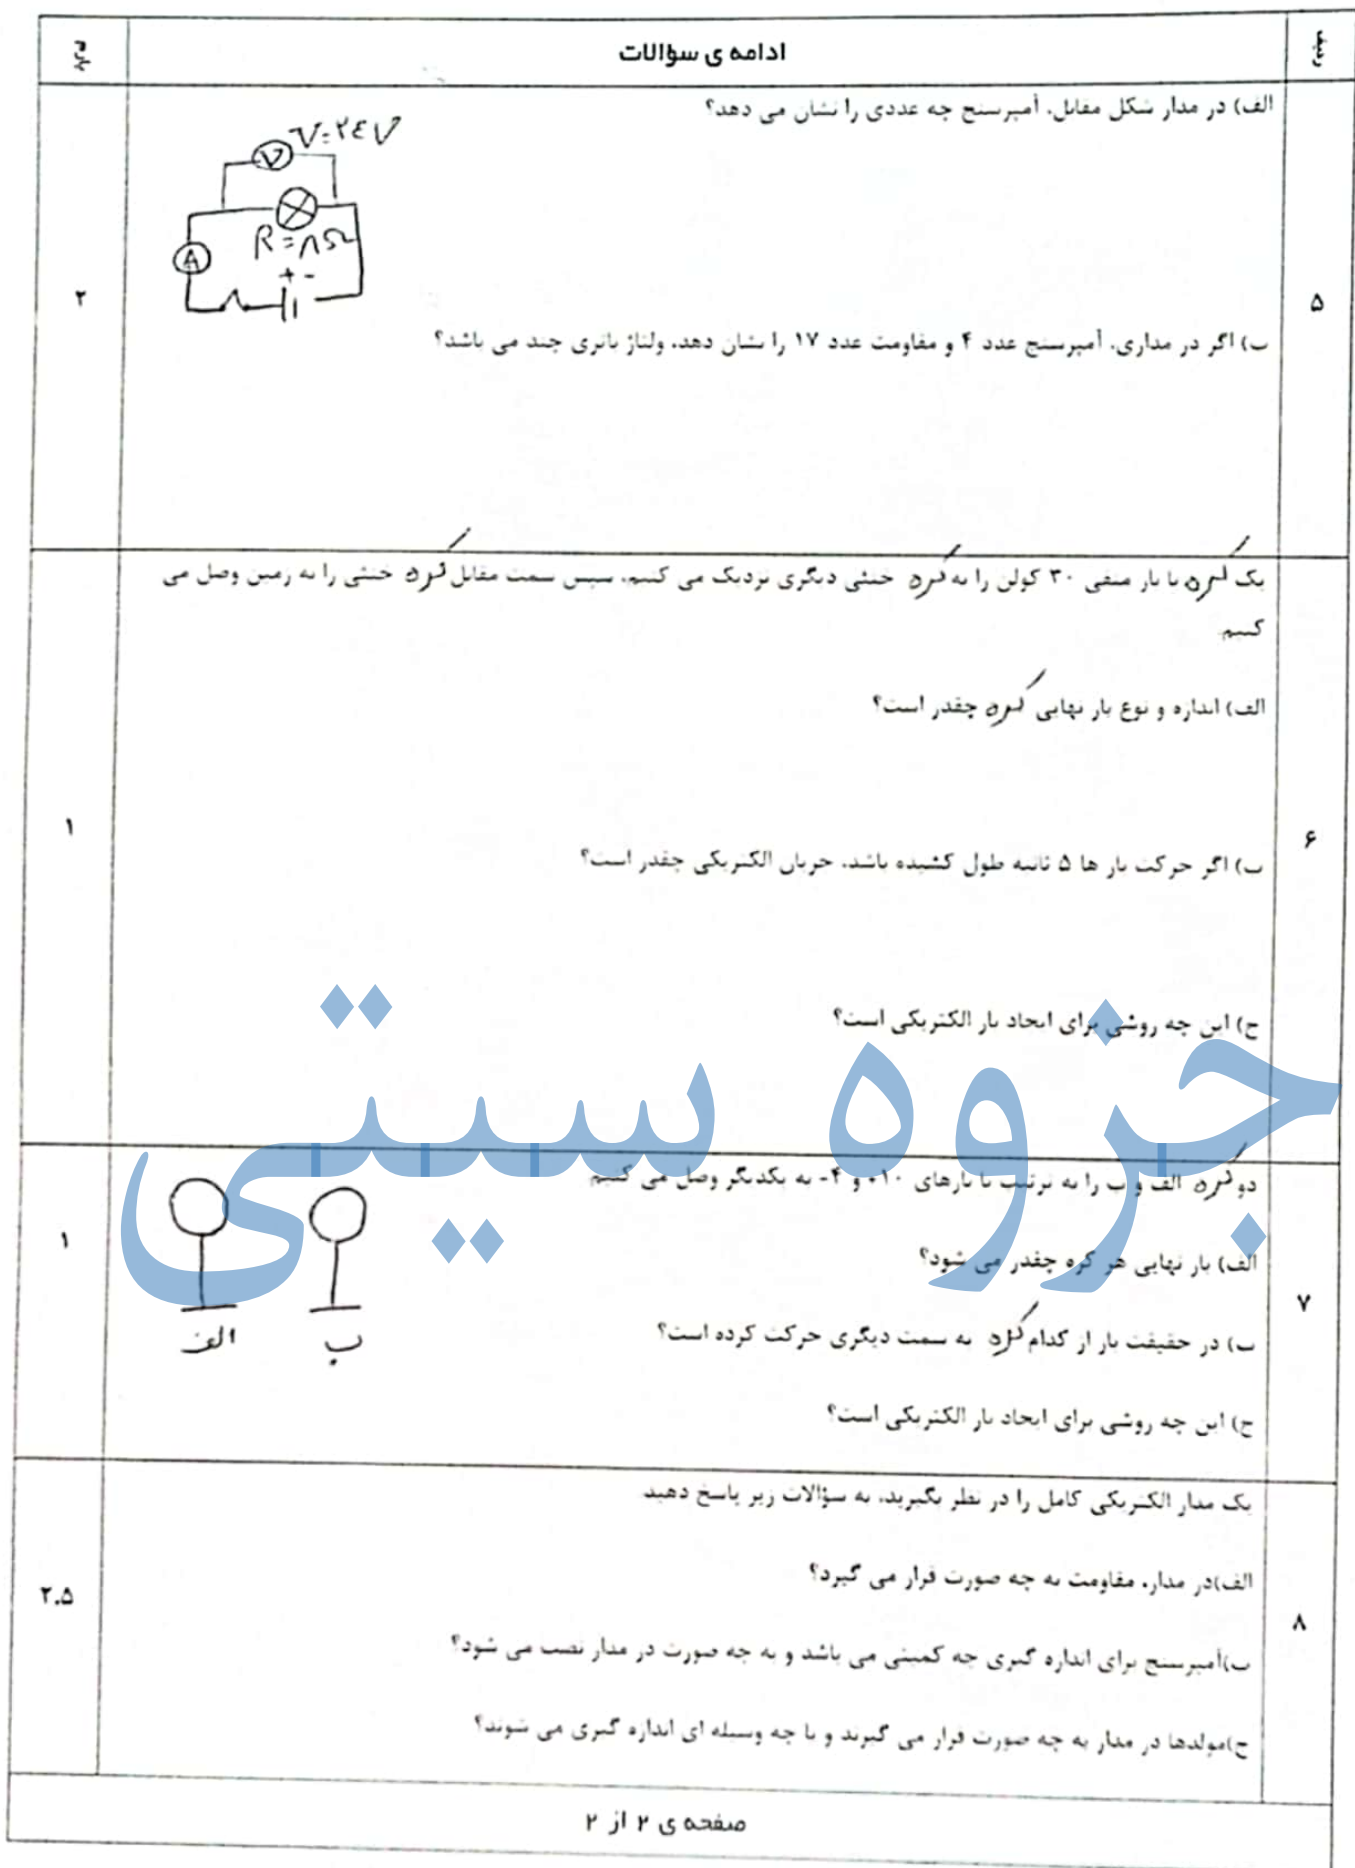 ردیف
ادامه ی سؤالات
بارم
۵
الف) در مدار شکل مقابل، آمپرسنج چه عددی را نشان می دهد؟
V=۲٤V
V
R=۸Ω
A
+ -
۲
ب) اگر در مداری، آمپرسنج عدد ۴ و مقاومت عدد ۱۷ را نشان دهد، ولتاژ باتری چند می باشد؟
۶
یک کره با بار منفی ۳۰ کولن را به کره خنثی دیگری نزدیک می کنیم، سپس سمت مقابل کره خنثی را به زمین وصل می
کنیم
الف) اندازه و نوع بار نهایی کره چقدر است؟
۱
ب) اگر حرکت بار ها ۵ ثانیه طول کشیده باشد، جریان الکتریکی چقدر است؟
ج) این چه روشی برای ایجاد بار الکتریکی است؟
جزوه سیتی
۷
دو کره الف و ب را به ترتیب با بارهای ۱۰+ و ۴- به یکدیگر وصل می کنیم
الف) بار نهایی هر کره چقدر می شود؟
۱
ب) در حقیقت بار از کدام کره به سمت دیگری حرکت کرده است؟
الف
ب
ج) این چه روشی برای ایجاد بار الکتریکی است؟
۸
یک مدار الکتریکی کامل را در نظر بگیرید، به سؤالات زیر پاسخ دهید
الف)در مدار، مقاومت به چه صورت قرار می گیرد؟
۲.۵
ب)آمپرسنج برای اندازه گیری چه کمیتی می باشد و به چه صورت در مدار نصب می شود؟
ج)مولدها در مدار به چه صورت قرار می گیرند و با چه وسیله ای اندازه گیری می شوند؟
صفحه ی ۲ از ۲